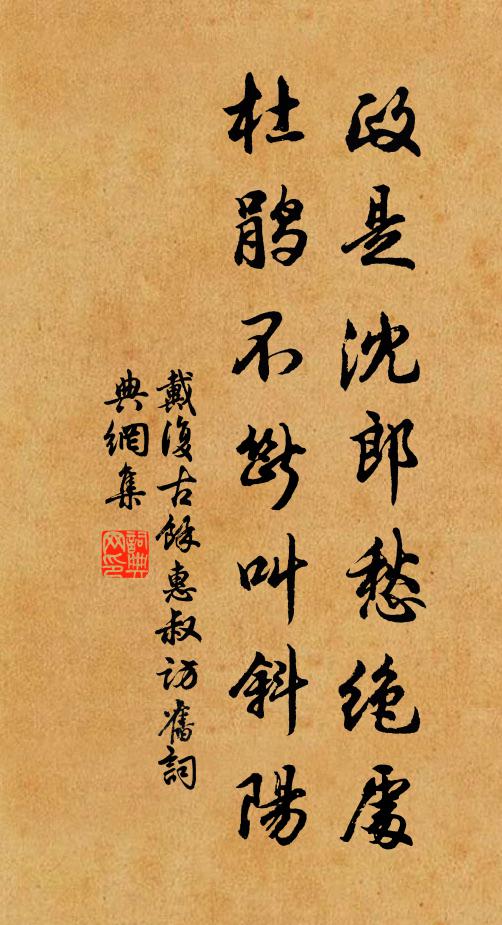 政是沈郎愁绝處
杜鹃不断叫斜陽
戴復古餘惠叔訪舊詞
典網集
詞典網印